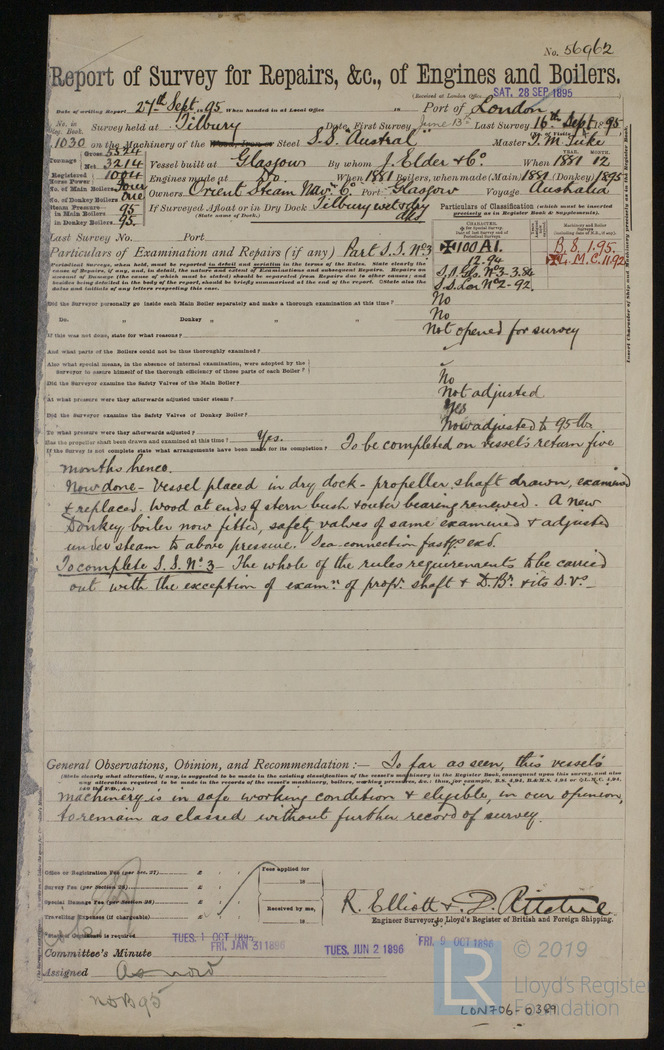 No. 56962
Report of Survey for Repairs, &c., of Engines and Boilers.
(Received at London Office SAT. 28 SEP 1895
Date of writing Report 27th Sept. 1895 When handed in at Local Office 18 Port of London
No. in Reg. Book. Survey held at Tilbury Date, First Survey June 13th Last Survey 16th Sept 1895
1030 on the Machinery of the Wood, Iron or Steel S.S. "Austral" Master
Tonnage Gross 5524 Net 3214 Vessel built at Glasgow By whom J. Elder & Co. When 1881 12 YEAR. MONTH.
Registered Horse Power 1004 Engines made at Do. When 1881 Boilers, when made (Main) 1881 (Donkey) 1895
No. of Main Boilers Four No. of Donkey Boilers One Owners Orient Steam Nav. Co. Port Glasgow Voyage Australia
Steam Pressure in Main Boilers 95 in Donkey Boilers 95 If Surveyed Afloat or in Dry Dock Tilbury wet & dry dks
(State name of Dock.)
Particulars of Classification (which must be inserted precisely as in Register Book & Supplements).
Last Survey No. Port
CHARACTER.
Machinery and Boiler Surveys
✠100A1. B.S. 1.95.
12.94 ✠L.M.C. 11.92
S.S. Gls. No. 3-3.84
S.S. Lon No. 2-92.
Particulars of Examination and Repairs (if any) Part S.S. No. 3
Periodical Surveys, when held, must be reported in detail and seriatim in the terms of the Rules. State clearly the
cause of Repairs, if any, and, in detail, the nature and extent of Examinations and subsequent Repairs. Repairs on
account of Damage (the cause of which must be stated) should be separated from Repairs due to other causes; and
besides being detailed in the body of the report, should be briefly summarised at the end of the report. State also the
dates and initials of any letters respecting this case.
Did the Surveyor personally go inside each Main Boiler separately and make a thorough examination at this time? No
Do. " Donkey " " " No
If this was not done, state for what reasons? Not opened for survey
And what parts of the Boilers could not be thus thoroughly examined?
Also what special means, in the absence of internal examination, were adopted by the
Surveyor to assure himself of the thorough efficiency of those parts of each Boiler?
Did the Surveyor examine the Safety Valves of the Main Boiler? No
At what pressure were they afterwards adjusted under steam? Not adjusted
Did the Surveyor examine the Safety Valves of Donkey Boiler? Yes
To what pressure were they afterwards adjusted? Now adjusted to 95 lb
Has the propeller shaft been drawn and examined at this time? Yes.
If the Survey is not complete state what arrangements have been made for its completion? To be completed on vessel's return five
months hence.
Now done - Vessel placed in dry dock - propeller shaft drawn, examined
& replaced. Wood at ends of stern bush & outer bearing renewed. A new
Donkey boiler now fitted, safety valves of same examined & adjusted
under steam to above pressure. Sea-connection fastgs. exd.
To complete S.S. No. 3 - The whole of the rules requirements to be carried
out with the exception of examn. of propr. shaft & D.Br. & its S.Vs. -
General Observations, Opinion, and Recommendation :— So far as seen, this vessel's
(State clearly what alteration, if any, is suggested to be made in the existing classification of the vessel's machinery in the Register Book, consequent upon this survey, and also
machinery is in safe working condition & eligible, in our opinion,
to remain as classed without further record of survey.
Office or Registration Fee (per Sec. 27) £ Fees applied for
Survey Fee (per Section 28) £ 18
Special Damage Fee (per Section 28) £ Received by me,
Travelling Expenses (if chargeable) £ 18
R. Elliott & D. Ritchie
Engineer Surveyor to Lloyd's Register of British and Foreign Shipping.
TUES. 1 OCT 1895
FRI. JAN 31 1896 TUES. JUN 2 1896 FRI. 9 OCT 1896
Committee's Minute
Assigned As now
© 2019
LR
Lloyd's Register
Foundation
LON706-0389